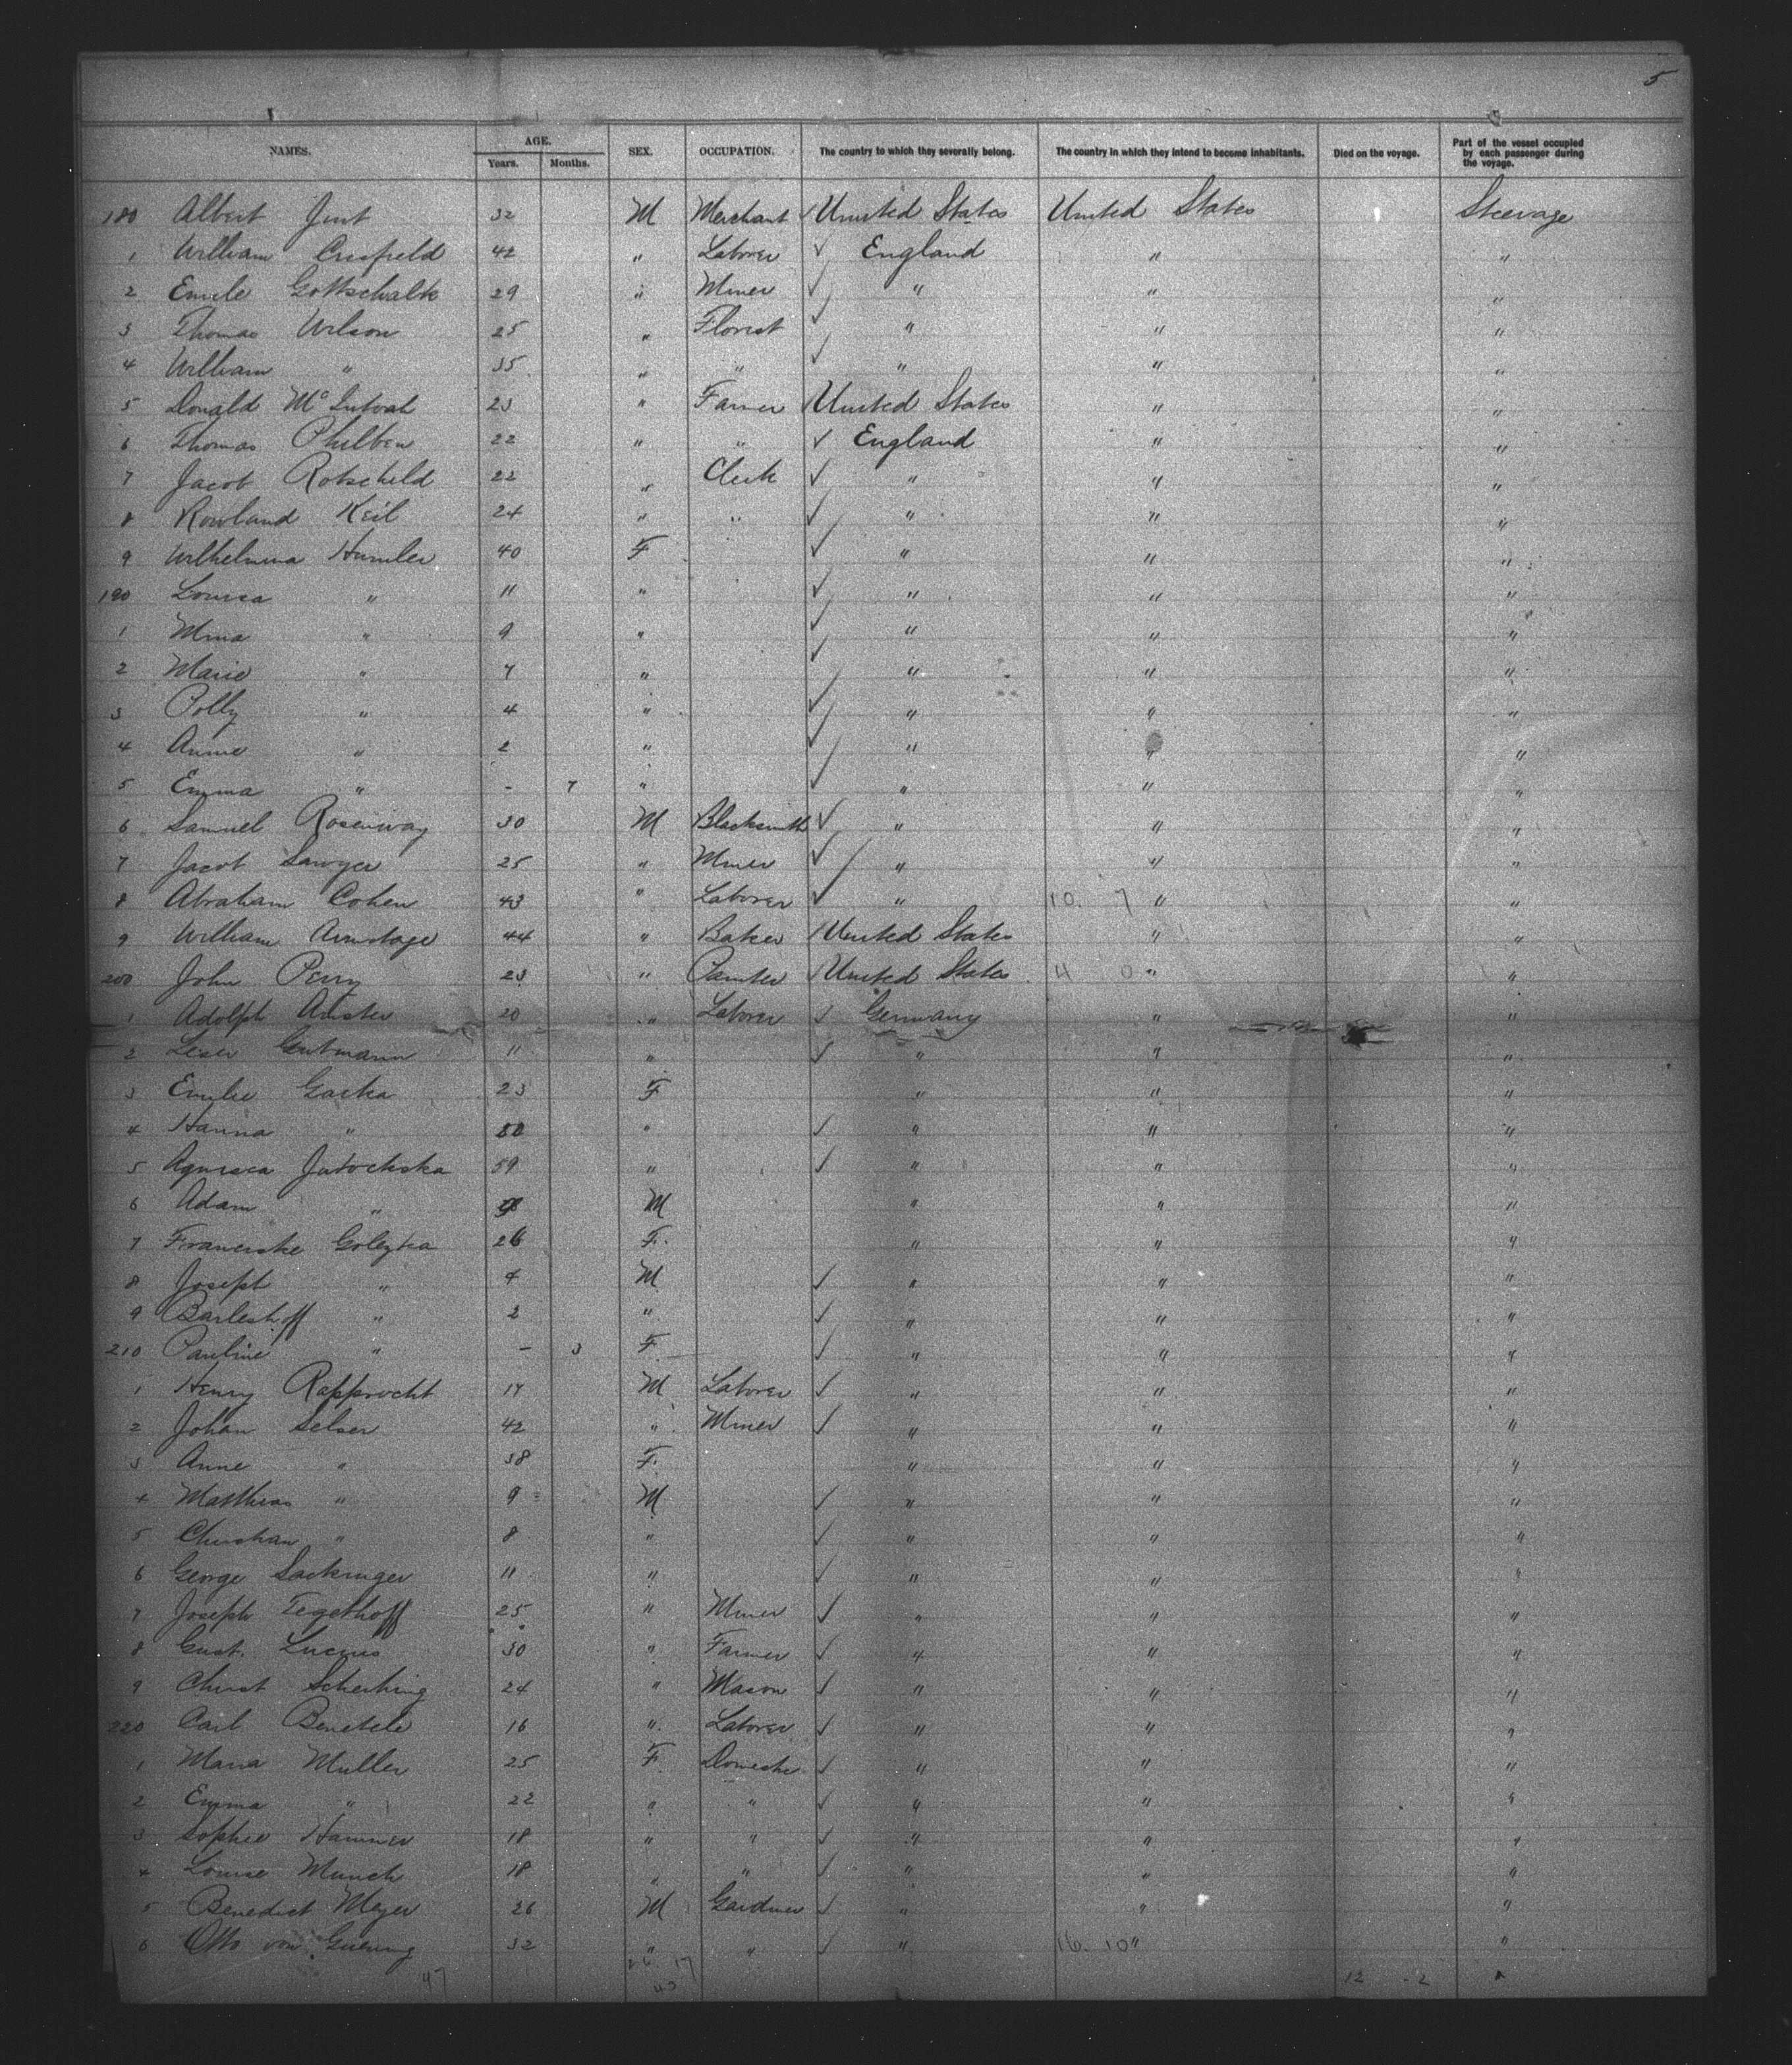 5
NAMES. AGE. Years. Months. SEX. OCCUPATION. The country to which they severally belong. The country in which they intend to become inhabitants. Died on the voyage. Part of the vessel occupied by each passenger during the voyage.
180 Albert Just 32 M Merchant ✓ United States United States Steerage
1 William Crisfield 42 " Laborer ✓ England " "
2 Emile Gottschalk 29 " Miner ✓ " " "
3 Thomas Wilson 25 " Florist ✓ " " "
4 William " 35 " " ✓ " " "
5 Donald 23 " Farmer ✓ United States " "
6 Thomas Philben 22 " " ✓ England " "
7 Jacob Rotscheld 22 " Clerk ✓ " " "
8 Rowland Keil 24 " " ✓ " " "
9 Wilhelmina Humler 40 F ✓ " " "
190 Louisa " 11 " ✓ " " "
1 Mina " 9 " ✓ " " "
2 Marie " 7 " ✓ " " "
3 Polly " 4 " ✓ " " "
4 Annie " 2 " ✓ " " "
5 Emma " - 7 " ✓ " " "
6 Samuel Rosenway 30 M Blacksmith ✓ " " "
7 Jacob Sawyer 25 " Miner ✓ " " "
8 Abraham Cohen 43 " Laborer ✓ " 10. 7 " "
9 William Armitage 44 " Baker ✓ United States " "
200 John Perry 23 " Painter ✓ United States 4 0 " "
1 Adolph 20 " Laborer ✓ Germany " "
2 Leser Gutmann 11 " ✓ " " "
3 Emilie Gacka 23 F " " "
4 Hanna " " ✓ " " "
5 59 " ✓ " " "
6 Adam " M " " "
7 Franciske Goleyka 26 F. " " "
8 Joseph " 4 M ✓ " " "
9 " 2 " ✓ " " "
210 Pauline " - 3 F. ✓ " " "
1 Henry Rapprocht 17 M Laborer ✓ " " "
2 Johan Selser 42 " Miner ✓ " " "
3 Anne " 38 F. " " "
4 Matthias " 9 M ✓ " " "
5 Christian " 8 " ✓ " " "
6 George Sackinger 11 " ✓ " " "
7 Joseph Tegethoff 25 " Miner ✓ " " "
8 Gust. Lucius 30 " Farmer ✓ " " "
9 Christ 24 " Mason ✓ " " "
220 Carl 16 " Laborer ✓ " " "
1 Maria Muller 25 F Domestic ✓ " " "
2 Emma " 22 " " ✓ " " "
3 Sophie Hammer 18 " " ✓ " " "
4 Louise Munch 18 " " ✓ " " "
5 Benedict Meyer 26 M Gardner ✓ " " "
6 Otto von 32 " " ✓ " 16. 10 " "
47 26 17 43 12 - 2